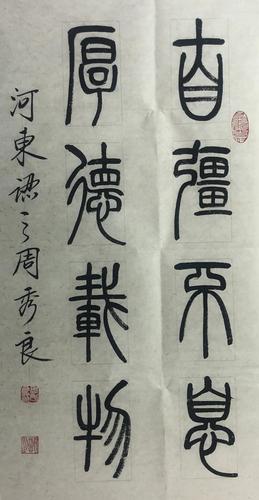 自彊不息
厚德載物
河東周秀良